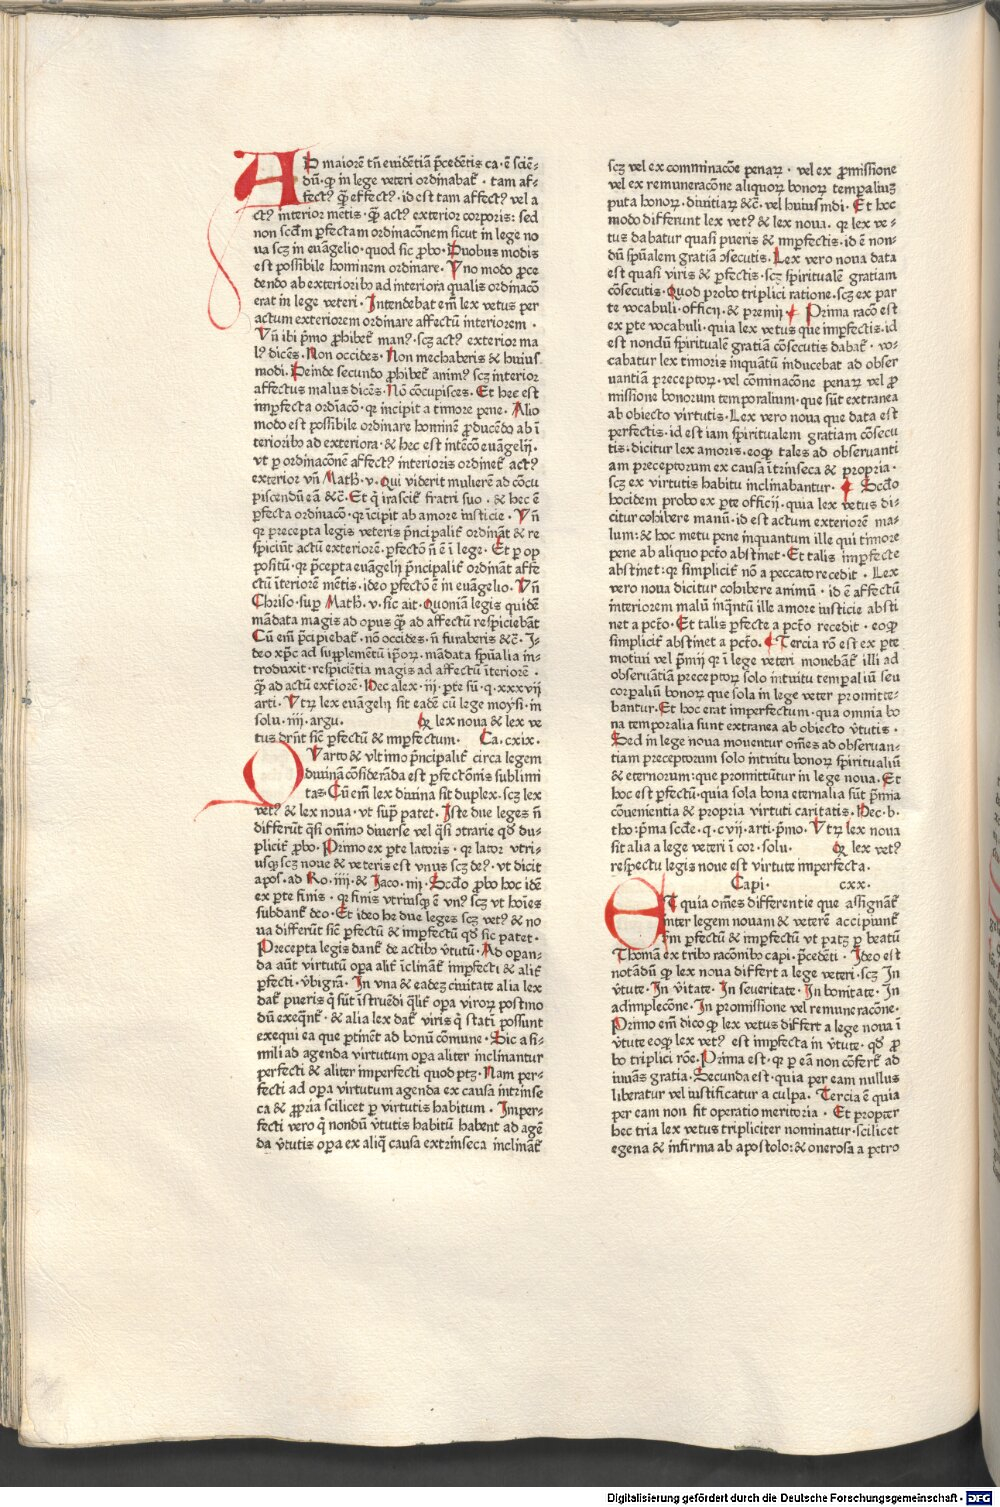 AD maiorē tn̄ euidētiā p̄cedētis ca · ē sciē-
dū · ꝙ in lege veteri ordinabat̄ · tam af-
fectꝰ q̄ȝ effectꝰ · id est tam affectꝰ vel a
ctꝰ interior mētis · q̄ȝ actꝰ exterior corporis: sed
non scd̄m ꝑfectam ordinacōnem sicut in lege no
ua scȝ in euāgelio · quod sic ꝓbo · Duobus modis
est possibile hominem ordinare · Vno modo ꝓce
dendo ab exterioribꝰ ad interiora qualis ordinacō
erat in lege veteri · Intendebat em̄ lex vetus per
actum exteriorem ordinare affectū interiorem ·
Vn̄ ibi p̄mo ꝓhibet̄ manꝰ · scȝ actꝰ exterior ma
lꝰ dicēs · Non occides · Non mechaberis & huius
modi · Deinde secundo ꝓhibet̄ animꝰ scȝ interior
affectus malus dicēs · Nō cōcupisces · Et hec est
imꝑfecta ordīacō · qr incipit a timore pene · Alio
modo est possibile ordinare hominē ꝓducēdo ab ī
terioribꝰ ad exteriora · & hec est intēcō euāgelij ·
vt ꝑ ordinacōnē affectꝰ interioris ordinet̄ actꝰ
exterior vn̄ Math · v · qui viderit mulierē ad cōcu
piscendū eā &c̄ · Et q̄ irascit̄ fratri suo · & hec ē
ꝑfecta ordinacō · qr īcipit ab amore iusticie · Vn̄
qr precepta legis veteris p̄ncipalit̄ ordināt & re
spiciūt actū exteriorē · ꝑfectō n̄ ē ī lege · Et ꝑ op
positū · qr p̄cepta euāgelij p̄ncipalit̄ ordināt affe
ctū īteriorē mētis · ideo ꝑfectō ē in euāgelio · Vn̄
Chriso · suꝑ Math · v · sic ait · Quoniā legis quidē
mādata magis ad opus q̄ȝ ad affectū respiciebāt
Cū em̄ p̄cipiebat̄ · nō occides · n̄ furaberis &c̄ · I-
deo xp̄c ad supplemētū ip̄oꝝ · mādata sp̄ualia in-
troduxit · respiciētia magis ad affectū īteriorē ·
q̄ȝ ad actū ext̄iorē · Hec alex · iij · ꝑte sū · q · xxxvij
arti · Vtꝝ lex euāgelij sit eadē cū lege moysi · in
solu · iiij · argu · Qꝛ lex noua & lex ve
tus dr̄nt sic̄ ꝑfectū & imꝑfectum · Ca · cxix ·
QVarto & vltimo p̄ncipalit̄ circa legem
diuinā cōsiderāda est ꝑfectōnis sublimi
tas · Cū em̄ lex diuina sit duplex · scȝ lex
vetꝰ & lex noua · vt sup̄ patet · Iste due leges n̄
differūt q̄si om̄imo diuerse vel q̄si ɔtrarie qd̄ du-
plicit̄ ꝓbo · Primo ex ꝑte latoris · qr lator vtri-
usqȝ scȝ noue & veteris est vnus scȝ deꝰ · vt dicit
apos · ad Ro · iiij · & Iaco · iiij · Scd̄o ꝓbo hoc idē
ex ꝑte finis · qr finis vtriusqȝ ē vnꝰ scȝ vt hoīes
subdant̄ deo · Et ideo he due leges scȝ vetꝰ & no
ua differūt sic̄ ꝑfectū & imꝑfectū qd̄ sic patet ·
Precepta legis dant̄ de actibꝰ v̄tutū · Ad oꝑan-
da aūt virtutū oꝑa alit̄ īclināt̄ imꝑfecti & alit̄
ꝑfecti · v̄bigr̄a · In vna & eadeȝ ciuitate alia lex
dat̄ pueris q̄ sūt īstruēdi q̄lit̄ oꝑa viroꝝ postmo
dū exeqn̄t̄ · & alia lex dat̄ viris q̄ stati possunt
exequi ea que ꝑtinēt ad bonū cōmune · Sic a si-
mili ad agenda virtutum oꝑa aliter inclinantur
perfecti & aliter imperfecti quod ptȝ · Nam per-
fecti ad oꝑa virtutum agenda ex causa intrinse
ca & ꝓpria scilicet ꝑ virtutis habitum · Imper-
fecti vero q̄ nondū v̄tutis habitū habent ad agē
da v̄tutis oꝑa ex aliq̄ causa extrinseca inclināt̄
scȝ vel ex comminacōe penaꝝ · vel ex ꝓmissione
vel ex remuneracōne aliquoꝝ bonoꝝ temꝑaliuȝ
puta honoꝝ · diuitiaꝝ &c̄ · vel huiusmōi · Et hoc
modo differunt lex vetꝰ & lex noua · qr lex ve-
tus dabatur quasi pueris & imꝑfectis · id ē non-
dū sp̄ualem gratiā ɔsecutis · Lex vero noua data
est quasi viris & ꝑfectis · scȝ sp̄iritualē gratiam
cōsecutis · Quod probo triplici ratione · scȝ ex par
te vocabuli · officij · & premij · Prima racō est
ex ꝑte vocabuli · quia lex vetus que imꝑfectis · id
est nondū sp̄iritualē gratiā cōsecutis dabat̄ · vo-
cabatur lex timoris inquātū inducebat ad obser
uantiā preceptoꝝ · vel cōminacōne penaꝝ vel ꝓ
missione bonorum temporalium · que sūt extranea
ab obiecto virtutis · Lex vero noua que data est
perfectis · id est iam sp̄iritualem gratiam cōsecu
tis · dicitur lex amoris · eoqȝ tales ad obseruanti
am preceptorum ex causa ītrinseca & propria ·
scȝ ex virtutis habitu inclinabantur · Scd̄o
hocidem probo ex ꝑte officij · quia lex vetus di-
citur cohibere manū · id est actum exteriorē ma-
lum: & hoc metu pene inquantum ille qui timore
pene ab aliquo pctō abstinet · Et talis imꝑfecte
abstinet: qr simplicit̄ nō a peccato recedit · Lex
vero noua dicitur cohibere animū · id ē affectū
interiorem malū inq̄ntū ille amore iusticie absti
net a pctō · Et talis ꝑfecte a pctō recedit · eoqȝ
simplicit̄ abstinet a pctō · Tercia rō est ex ꝑte
motiui vel p̄mij qr ī lege veteri mouebāt̄ illi ad
obseruātiā preceptoꝝ solo intuitu temꝑaliū seu
corꝑaliū bonoꝝ que sola in lege veter promitte-
bantur · Et hoc erat imperfectum · qua omnia bo
na temporalia sunt extranea ab obiecto v̄tutis ·
Sed in lege noua mouentur om̄es ad obseruan-
tiam preceptorum solo intuitu bonoꝝ sp̄iritualiū
& eternorum: que promittūtur in lege noua · Et
hoc est ꝑfectū · quia sola bona eternalia sūt p̄mia
cōuenientia & propria virtuti caritatis · Hec · b ·
tho · p̄ma scd̄e · q · cvij · arti · p̄mo · Vtꝝ lex noua
sit alia a lege veteri ī cor · solu · Qꝛ lex vetꝰ
respectu legis noue est virtute imperfecta ·
Capi · cxx ·
ET quia om̄es differentie que assignāt̄
inter legem nouam & veterē accipiunt̄
fm ꝑfectū & imꝑfectū vt patȝ ꝑ beatū
Thomā ex tribꝰ racōnibꝰ capi · p̄cedēti · Ideo est
notādū ꝙ lex noua differt a lege veteri · scȝ In
v̄tute · In v̄itate · In seueritate · In bonitate · In
adimplecōne · In promissione vel remuneracōne ·
Primo em̄ dico ꝙ lex vetus differt a lege noua ī
v̄tute eoqȝ lex vetꝰ est imꝑfecta in v̄tute · qd̄ ꝓ
bo triplici rōe · Prima est · qr ꝑ eā non cōfert̄ ad
iuuās gratia · Secunda est · quia per eam nullus
liberatur vel iustificatur a culpa · Tercia ē quia
per eam non fit operatio meritoria · Et propter
hec tria lex vetus tripliciter nominatur · scilicet
egena & infirma ab apostolo: & onerosa a petro
Digitalisierung gefördert durch die Deutsche Forschungsgemeinschaft · DFG